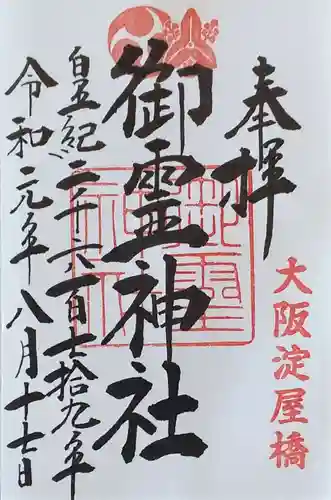 奉拝
大阪淀屋橋
御霊神社
皇紀二千六百七拾九年
令和元年八月十七日